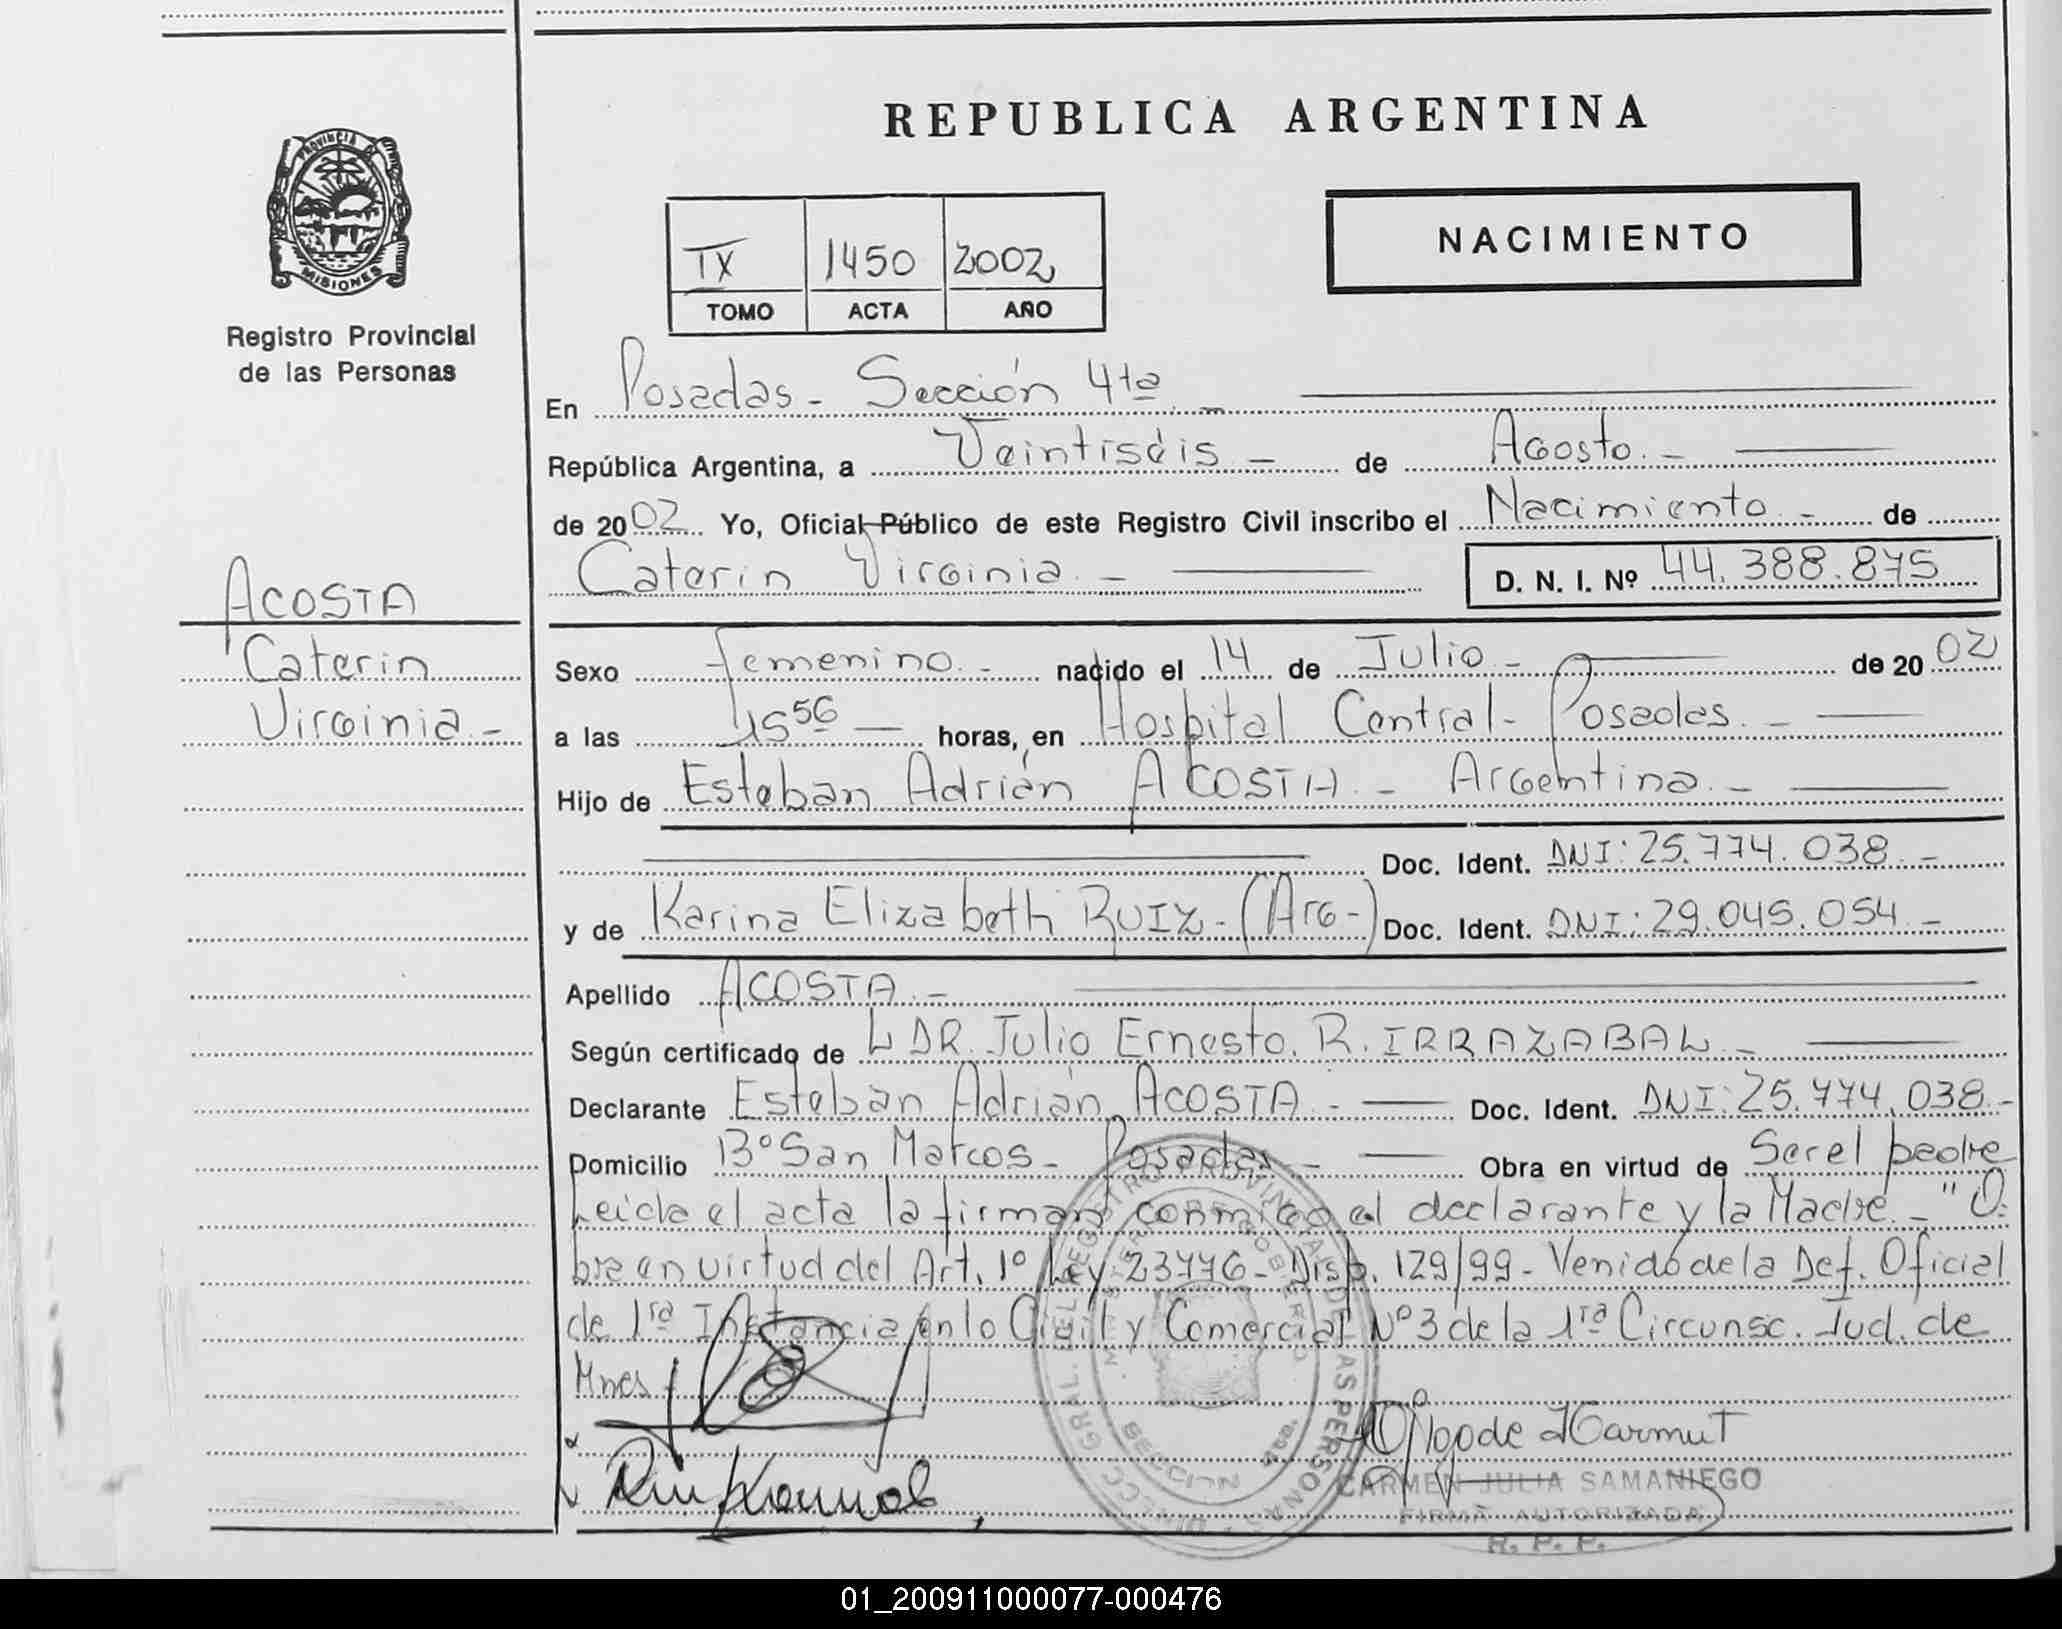 REPUBLICA ARGENTINA
PROVINCIA DE
MISIONES
Registro Provincial
de las Personas
NACIMIENTO
TX 1450 2002
TOMO ACTA AÑO
En Posadas - Sección 4ta -
República Argentina, a Veintiséis - de Agosto. -
de 2002 Yo, Oficial Público de este Registro Civil inscribo el Nacimiento - de
Caterin Virginia. - D. N. I. Nº 44.388.875
ACOSTA
Caterin
Virginia. -
Sexo femenino. - nacido el 14 de Julio - de 2002
a las 15 56 horas, en Hospital Central - Posadas. -
Hijo de Esteban Adrián ACOSTA - Argentina. -
Doc. Ident. DNI: 25.774.038 -
y de Karina Elizabeth RUIZ - (Arg -) Doc. Ident. DNI: 29.045.054 -
Apellido ACOSTA. -
Según certificado de DR. Julio Ernesto. R. IRRAZABAL -
Declarante Esteban Adrián ACOSTA - Doc. Ident. DNI: 25.774.038 -
Domicilio Bº San Marcos - Posadas - Obra en virtud de Ser el padre
Leida el acta la firman conmigo el declarante y la Madre. - "O
bra en virtud del Art. 1º Ley 23776 - Disp. 129/99 - Venido de la Def. Oficial
de 1ra Instancia en lo Civil y Comercial Nº 3 de la 1ra Circunsc. Jud. de
Mnes
CARMEN JULIA SAMANIEGO
FIRMA AUTORIZADA
R. P. P.
01_200911000077-000476